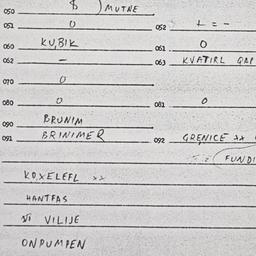 050 $ ) MUTNE
051 0 052 + = -
060 KU,BIK 061 0
062 - 063 KVATIRL
070 0
080 0 081 0
090 BRUNIM
091 BRINIMER 092 GRENICE xx
FUNDI
KOXELEFL xx
HANTFAS
VILIJE
ONPUMPEN